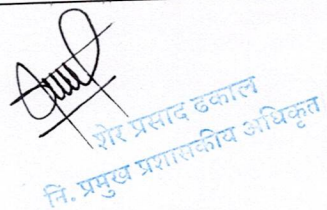 शेर प्रसाद ढकाल
नि. प्रमुख प्रशासकीय अधिकृत